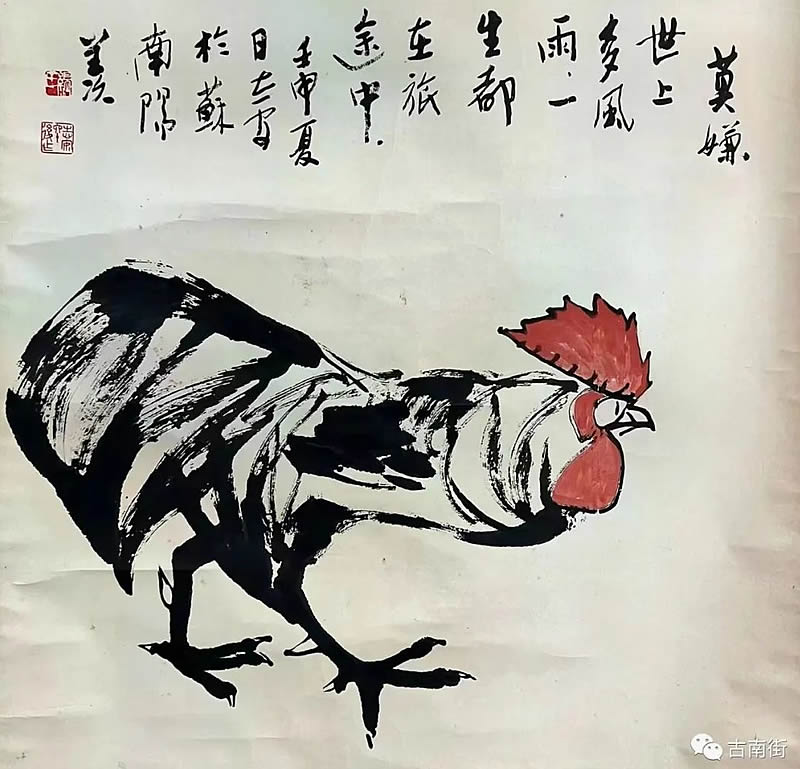 莫嫌
世上
多風
雨、一
生都
在旅
途中.
壬申夏
日
於蘇
南陽
羡次
古南街